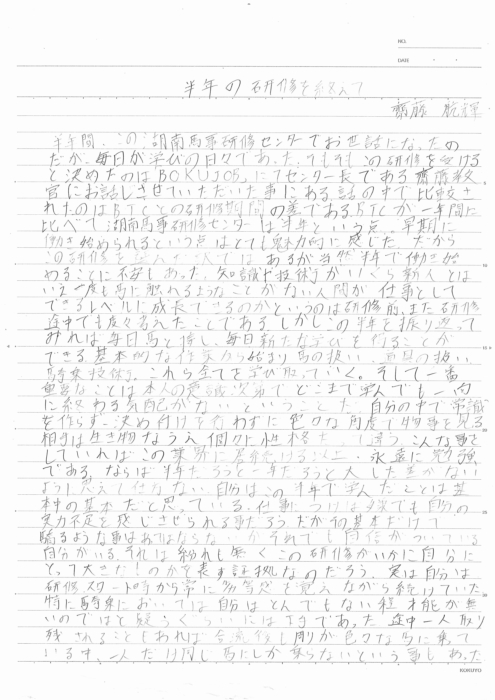 NO.
DATE
半年の研修を終えて
齋藤 航輝
半年間、この湖南馬事研修センターでお世話になったの
だが、毎日が学びの日々であった。そもそもこの研修を受ける
と決めたのはBOKUJOB.にてセンター長である齋藤教
官にお話しさせていただいた事にある。話の中で比較さ
れたのはBTCとの研修期間の差である。BTCが一年間に
比べて湖南馬事研修センターは半年という点、早期に
働き始められるという点はとても魅力的に感じた。だから
この研修を ではあるが当然半年で働き始
めることに不安もあった。知識も技術がいくら新人とは
いえ一度も馬に触れるようなことがない人間が仕事として
できるレベルに成長できるのかというのは研修前、また研修
途中でも度々考えたことである。しかしこの半年を振り返って
みれば毎日馬と接し、毎日新たな学びを得ることが
できる。基本的な作業から始まり馬の扱い、道具の扱い、
騎乗技術。これら全てを学び取っていく。そして一番
重要なことは本人の意識次第でどこまで学んでも一向
に終わる気配がないということだ。自分の中で常識
を作らず、決め付けを行わずに色々な角度で物事を見る
相手は生き物なうえ個々に性格だって違う。こんな事を
していればこの業界に居続ける以上、永遠に勉強
である。ならば半年だろうと一年だろうと大した差がない
ように思えて仕方ない。自分はこの半年で学んだことは基
本中の基本だと思っている。仕事につけば必ずでも自分の
実力不足を感じさせられる事だろう。だがその基本だけで
驕るような事はあってはならないがそれでも自信がついている
自分がいる。それは紛れも無くこの研修がいかに自分に
とって大きだいのかを表す証拠なのだろう。実は自分は
研修スタート時から常に劣等感を覚えながら続けていた
特に騎乗においては自分はとんでもない程才能が無
いのではと疑うぐらいには下手であった。途中一人取り
残されることもあれば合流後し周りが色々な馬に乗って
いる中、一人だけ同じ馬にしか乗らないという事もあった
KOKUYO